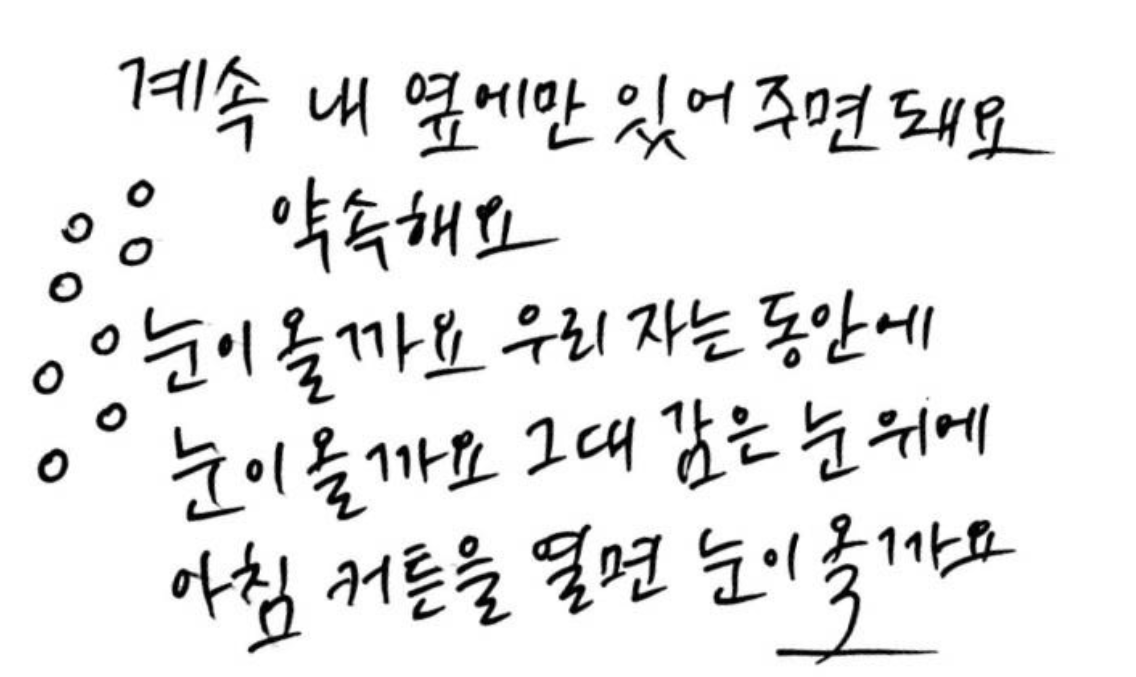 계속 내 옆에만 있어 주면 돼요
약속해요
눈이 올까요 우리 자는 동안에
눈이 올까요 그대 감은 눈 위에
아침 커튼을 열면 눈이 올까요